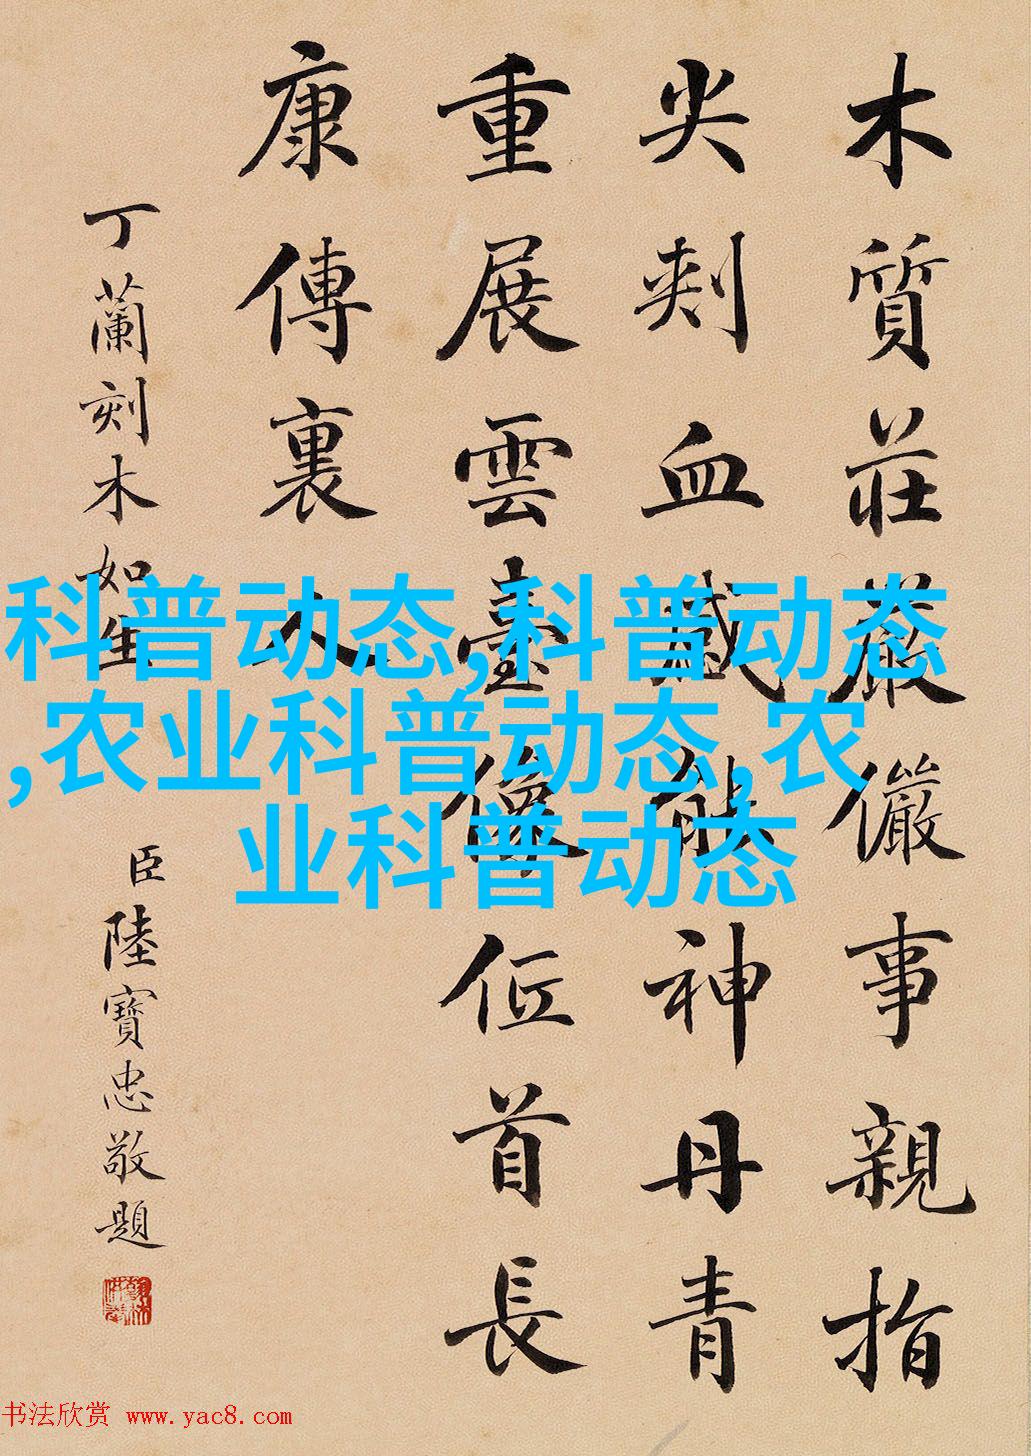 木質莊嚴儼事親指
尖刾血感能神丹青
重展雲臺像首長
康傳裏人
丁蘭刻木如生
臣陸寶忠敬題
科普动态,科普动态
,农业科普动态,农
业科普动态
书法欣赏 www.yac8.com